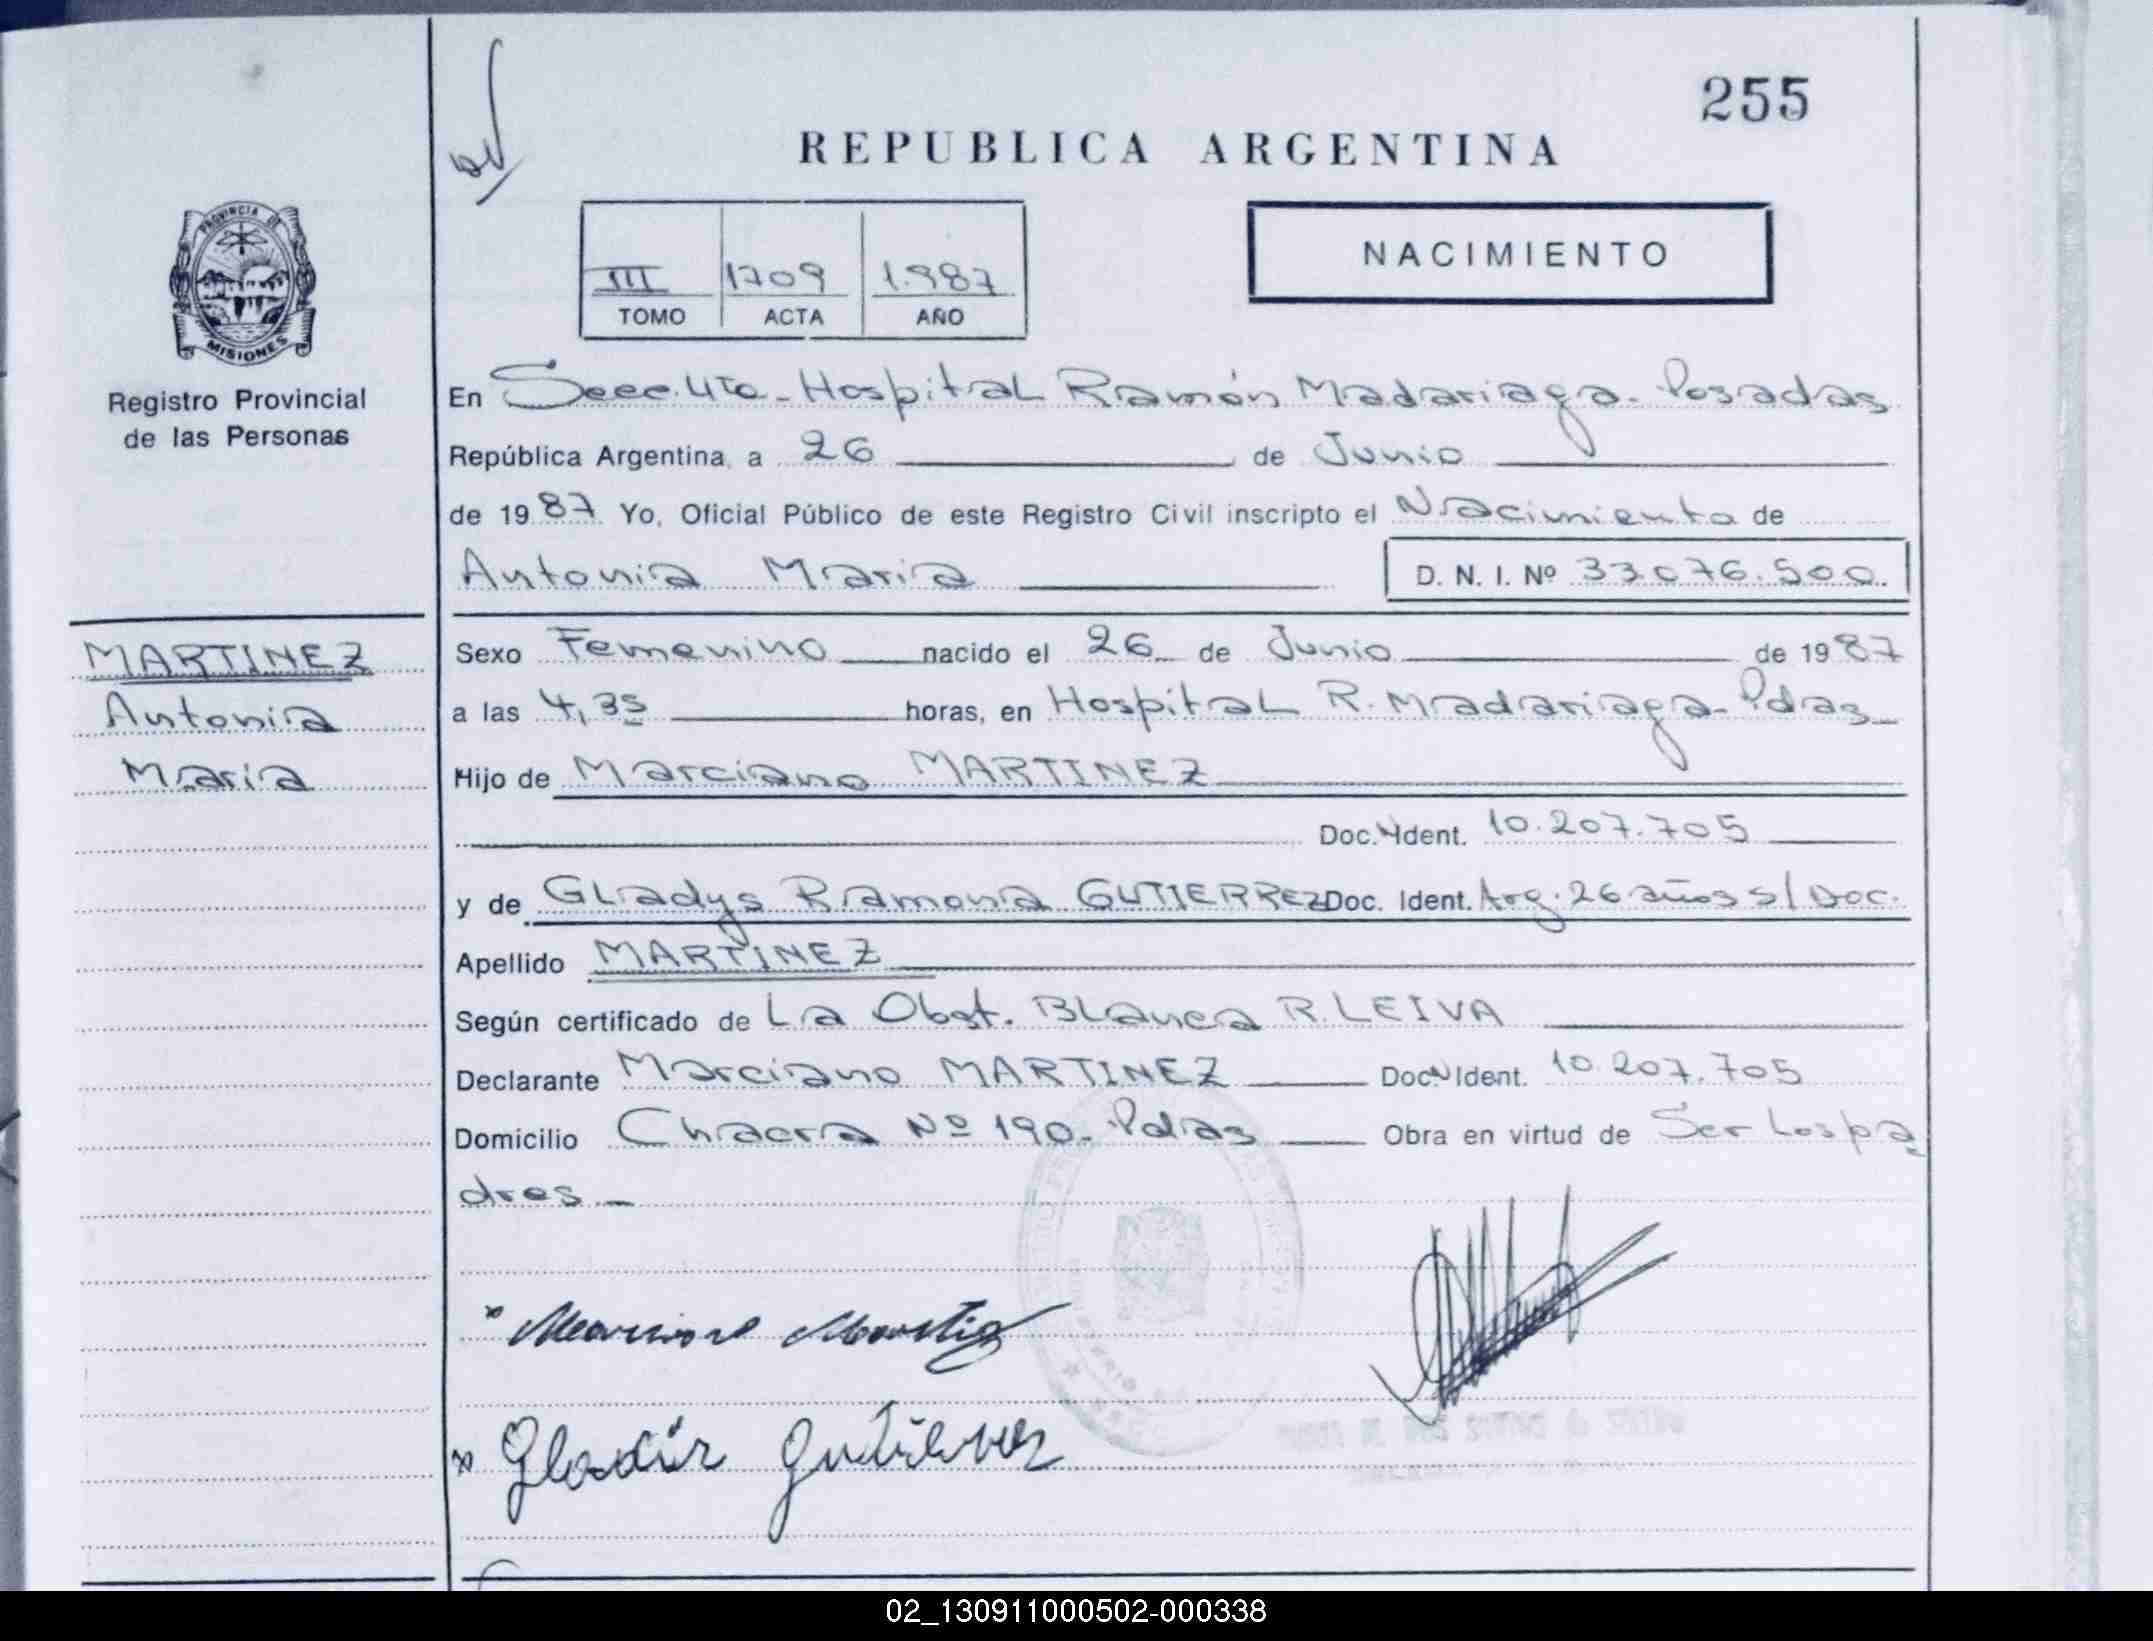 255
REPUBLICA ARGENTINA
PROVINCIA DE
MISIONES
Registro Provincial
de las Personas
III 1709 1.987
TOMO ACTA AÑO
NACIMIENTO
En Secc. 4ta - Hospital Ramón Madariaga - Posadas
República Argentina, a 26 de Junio
de 1987 Yo, Oficial Público de este Registro Civil inscripto el Nacimiento de
Antonia Maria D. N. I. Nº 33076.500
MARTINEZ
Antonia
Maria
Sexo Femenino nacido el 26 de Junio de 1987
a las 4,35 horas, en Hospital R. Madariaga - Pdas
Hijo de Marciano MARTINEZ
Doc. Ident. 10.207.705
y de Gladys Ramona GUTIERREZ Doc. Ident. Arg. 26 años s/ Doc.
Apellido MARTINEZ
Según certificado de La Obst. Blanca R. LEIVA
Declarante Marciano MARTINEZ Doc. Ident. 10.207.705
Domicilio Chacra Nº 190 - Pdas Obra en virtud de Ser Los pa
dres
Gladir Gutierrez
02_130911000502-000338